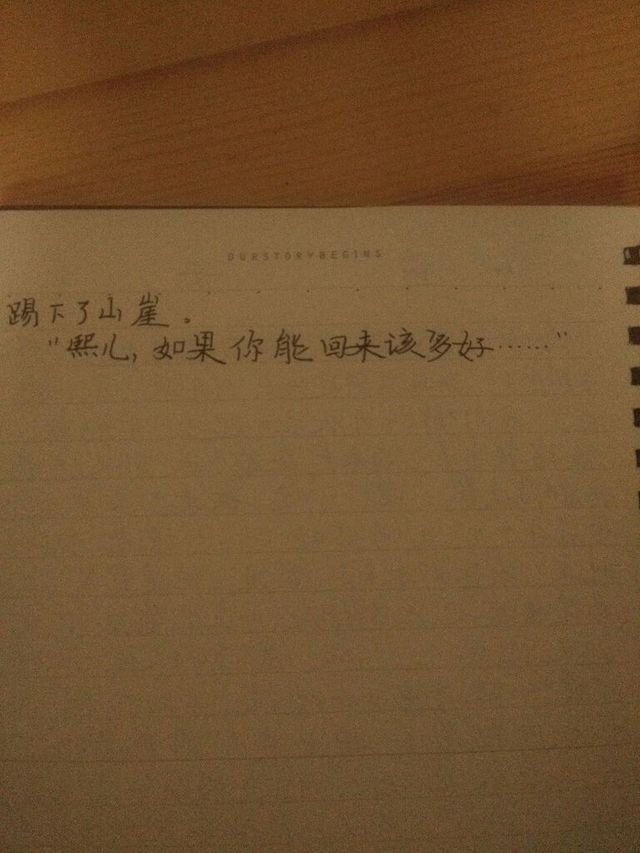 OURSTORYBEGINS
踢下了山崖。
“熙儿,如果你能回来该多好……”